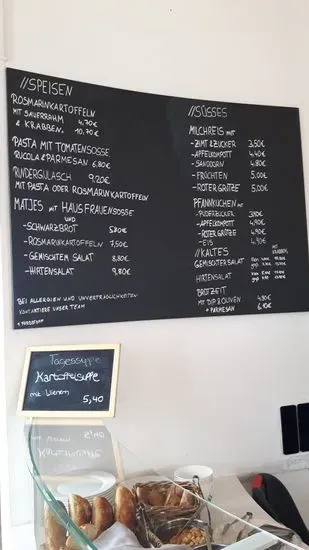 //SPEISEN
ROSMARINKARTOFFELN
MIT SAUERRAHM 4.70€
& KRABBEN. 10.70€
PASTA MIT TOMATENSOSSE
RUCOLA & PARMESAN 6.80€
RINDERGULASCH 9.20€
MIT PASTA ODER ROSMARINKARTOFFELN
MATJES MIT HAUSFRAUENSOSSE
UND
-SCHWARZBROT 5.80€
-ROSMARINKARTOFFELN 7,50€
-GEMISCHTEM SALAT 8,80€
-HIRTENSALAT 9,80€
BEI ALLERGIEN UND UNVERTRÄGLICHKEITEN
KONTAKTIERE UNSER TEAM
//SÜSSES
MILCHREIS MIT
-ZIMT&ZUCKER 3,50€
-APFELKOMPOTT 4,40€
-SANDDORN 4,80€
-FRÜCHTEN 5,00€
-ROTER GRÜTZE 5,00€
PFANNKUCHEN MIT
-PUDERZUCKER 3,80€
-APFELKOMPOTT 4,90€
-ROTER GRÜTZE 4,90€
-EIS 4,90€
//KALTES
MIT KRABBEN
GEMISCHTER SALAT
HIRTENSALAT
BROTZEIT
MIT DIP & OLIVEN 4,90€
+ PARMESAN 6,90€
Tagessuppe
Kartoffelsuppe
mit Wienern 5,40